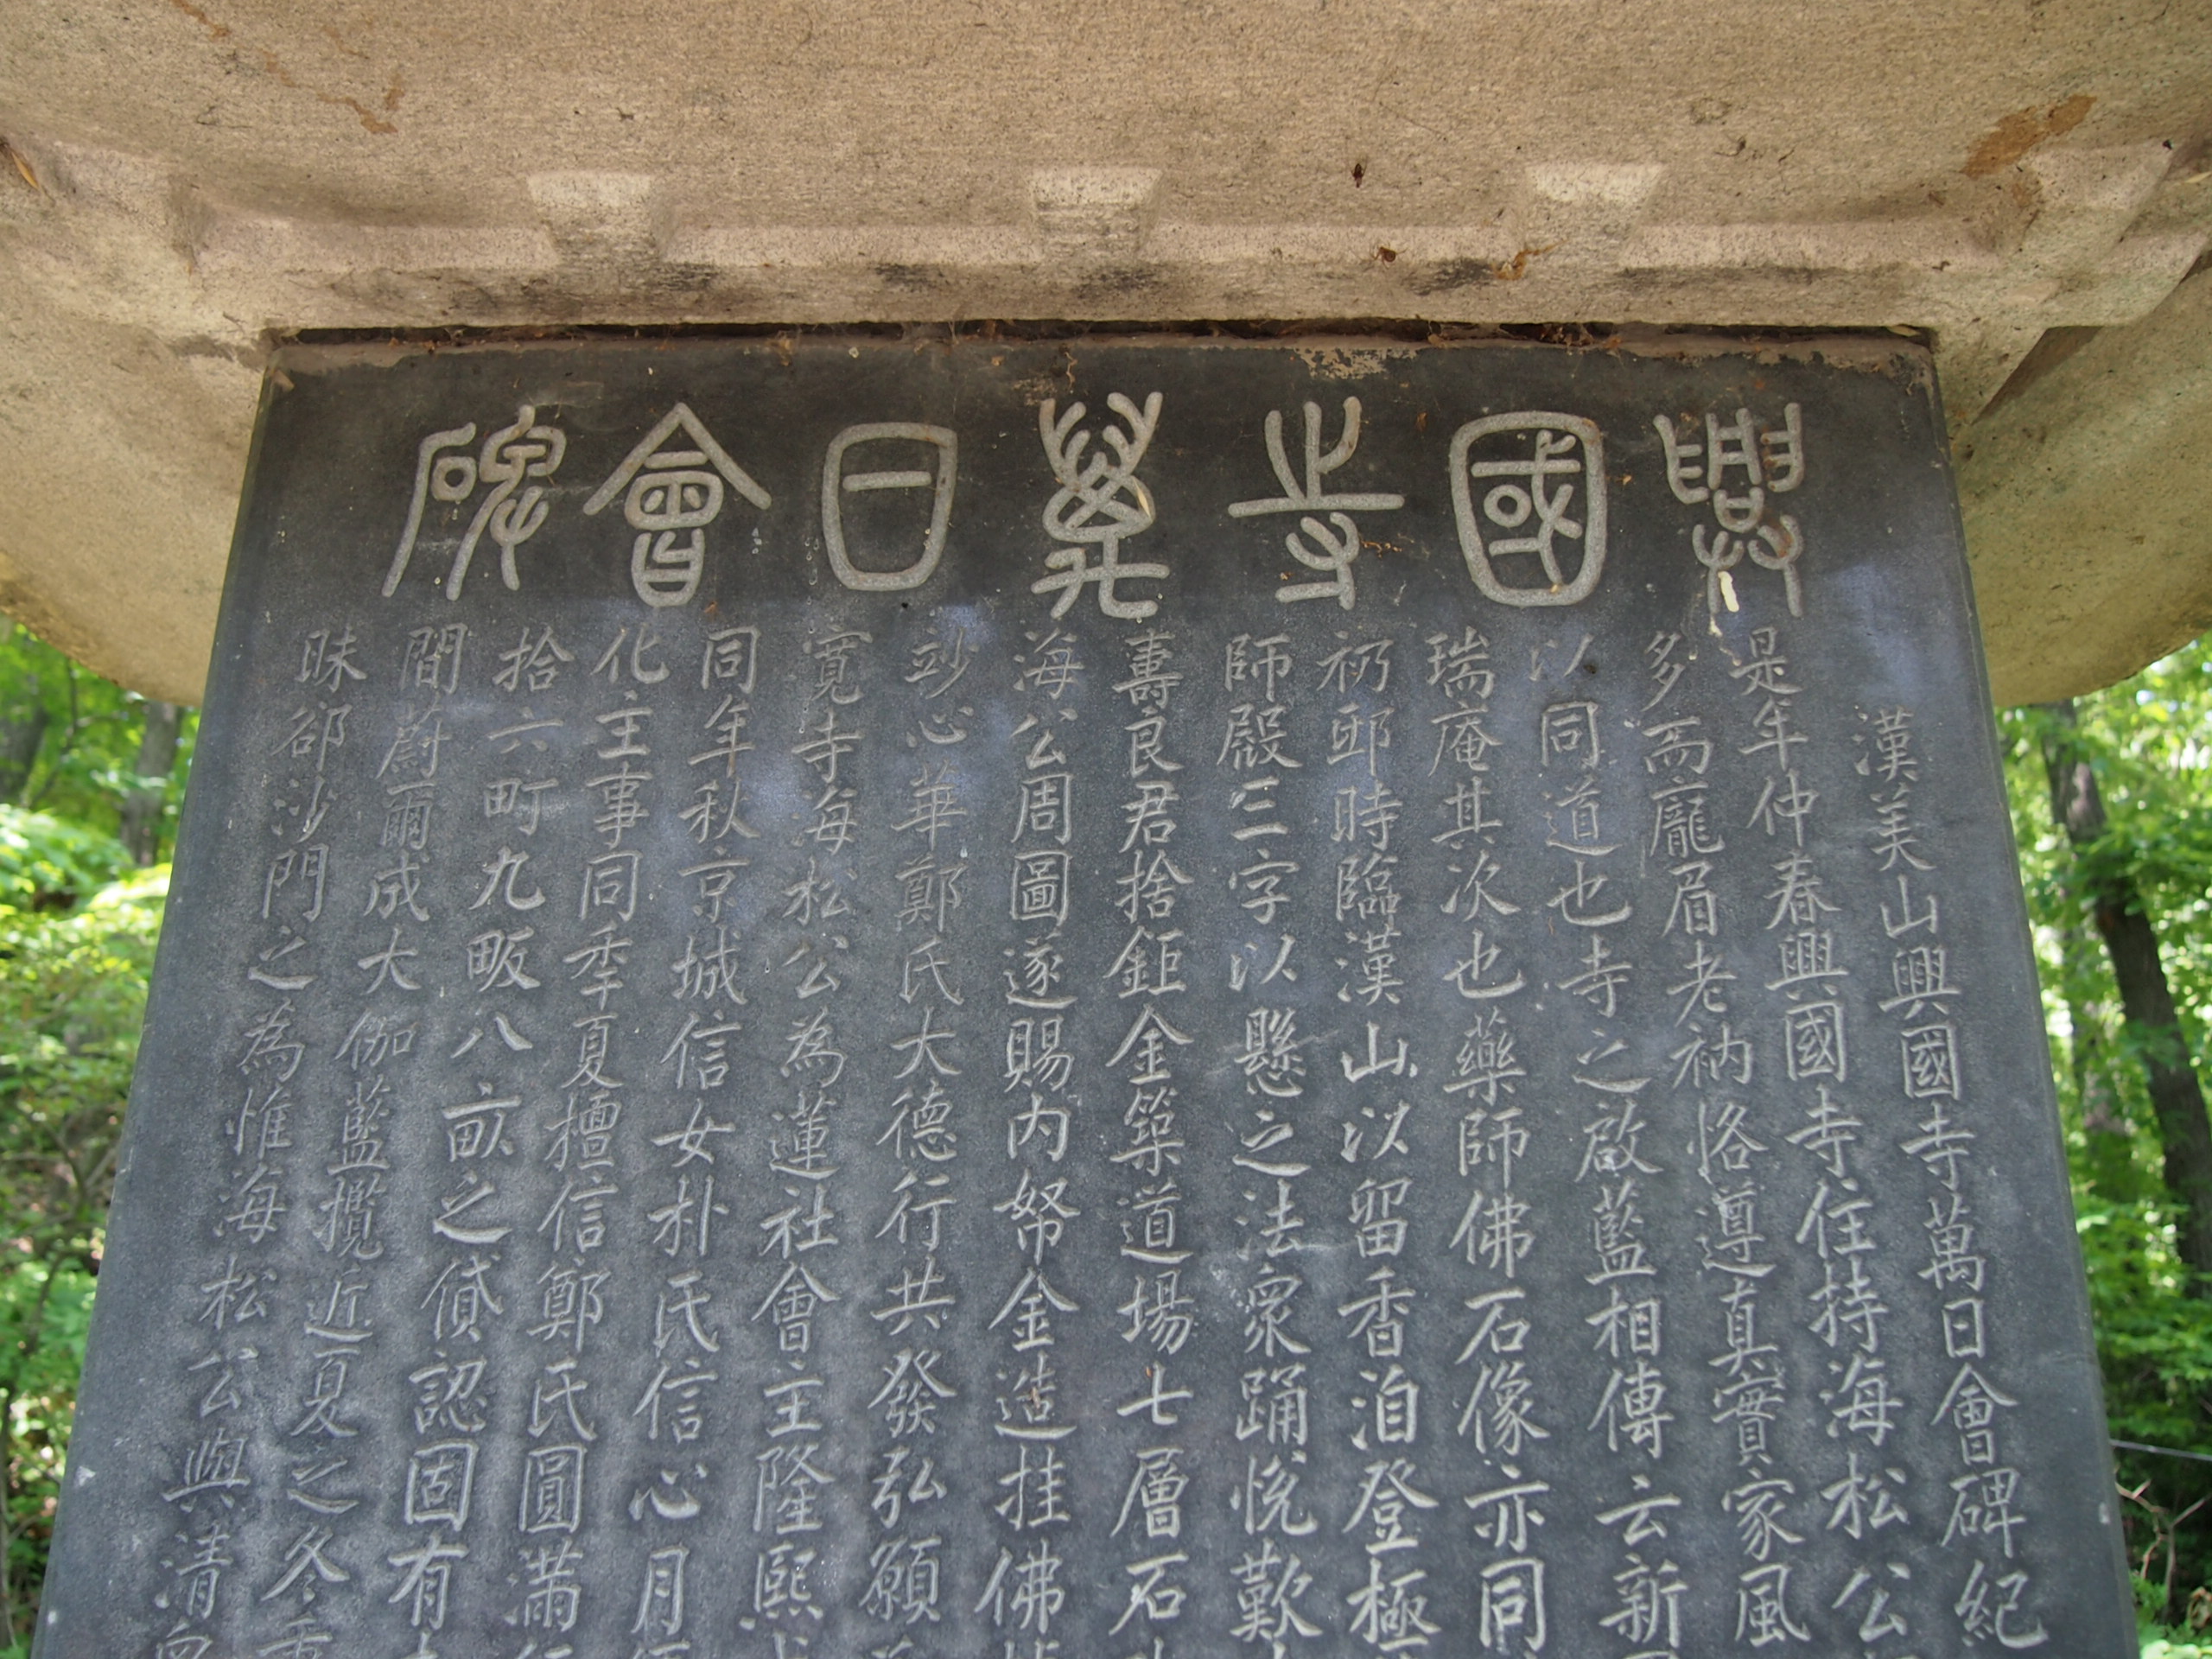 興國寺萬日會碑
漢美山興國寺萬日會碑紀
是年仲春興國寺住持海松公
多而龐眉老衲恪遵真實家風
以同道也寺之啟藍相傳云新
瑞庵其次也藥師佛石像亦同
礽邸時臨漢山以留香洎登極
師殿三字以懸之法衆踊悅歎
壽良君捨鉅金築道場七層石
海公周圖遂賜內帑金造挂佛
竗心華鄭氏大德行共發弘願
寬寺海松公為蓮社會主隆熙
同年秋京城信女朴氏信心月
化主事同季夏檀信鄭氏圓滿
拾六町九畈八畝之貸認固有
間蔚爾成大伽藍攬近夏之冬
昧郤沙門之為惟海松公與清